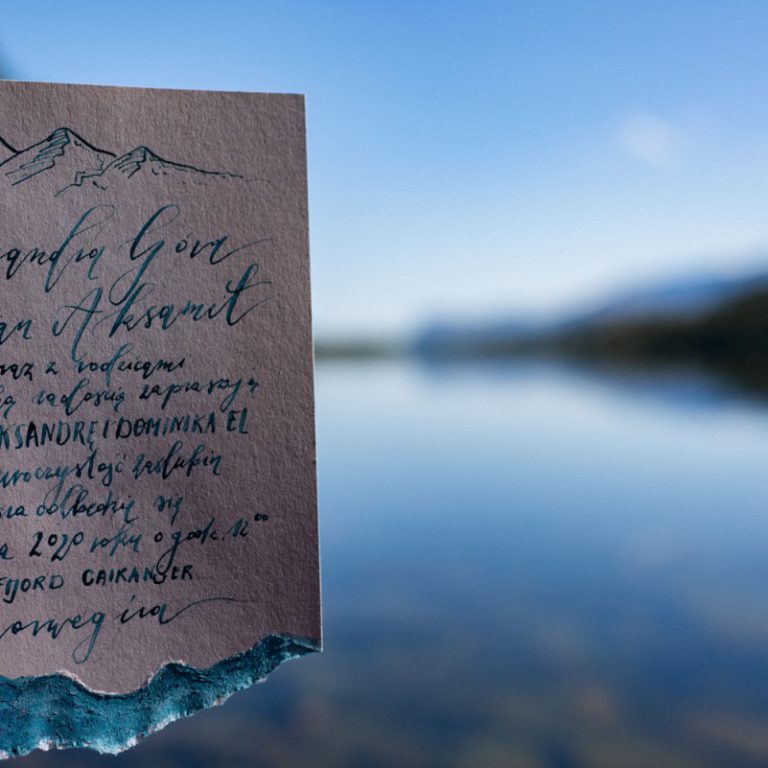 andra Góra
an Aksamit
raz z rodzicami
ą radością zapraszają
KSANDRĘ I DOMINIKA EL
uroczystość zaślubin
óra odbędzie się
a 2020 roku o godz. 12⁰⁰
FJORD GAIRANGER
Norwegia